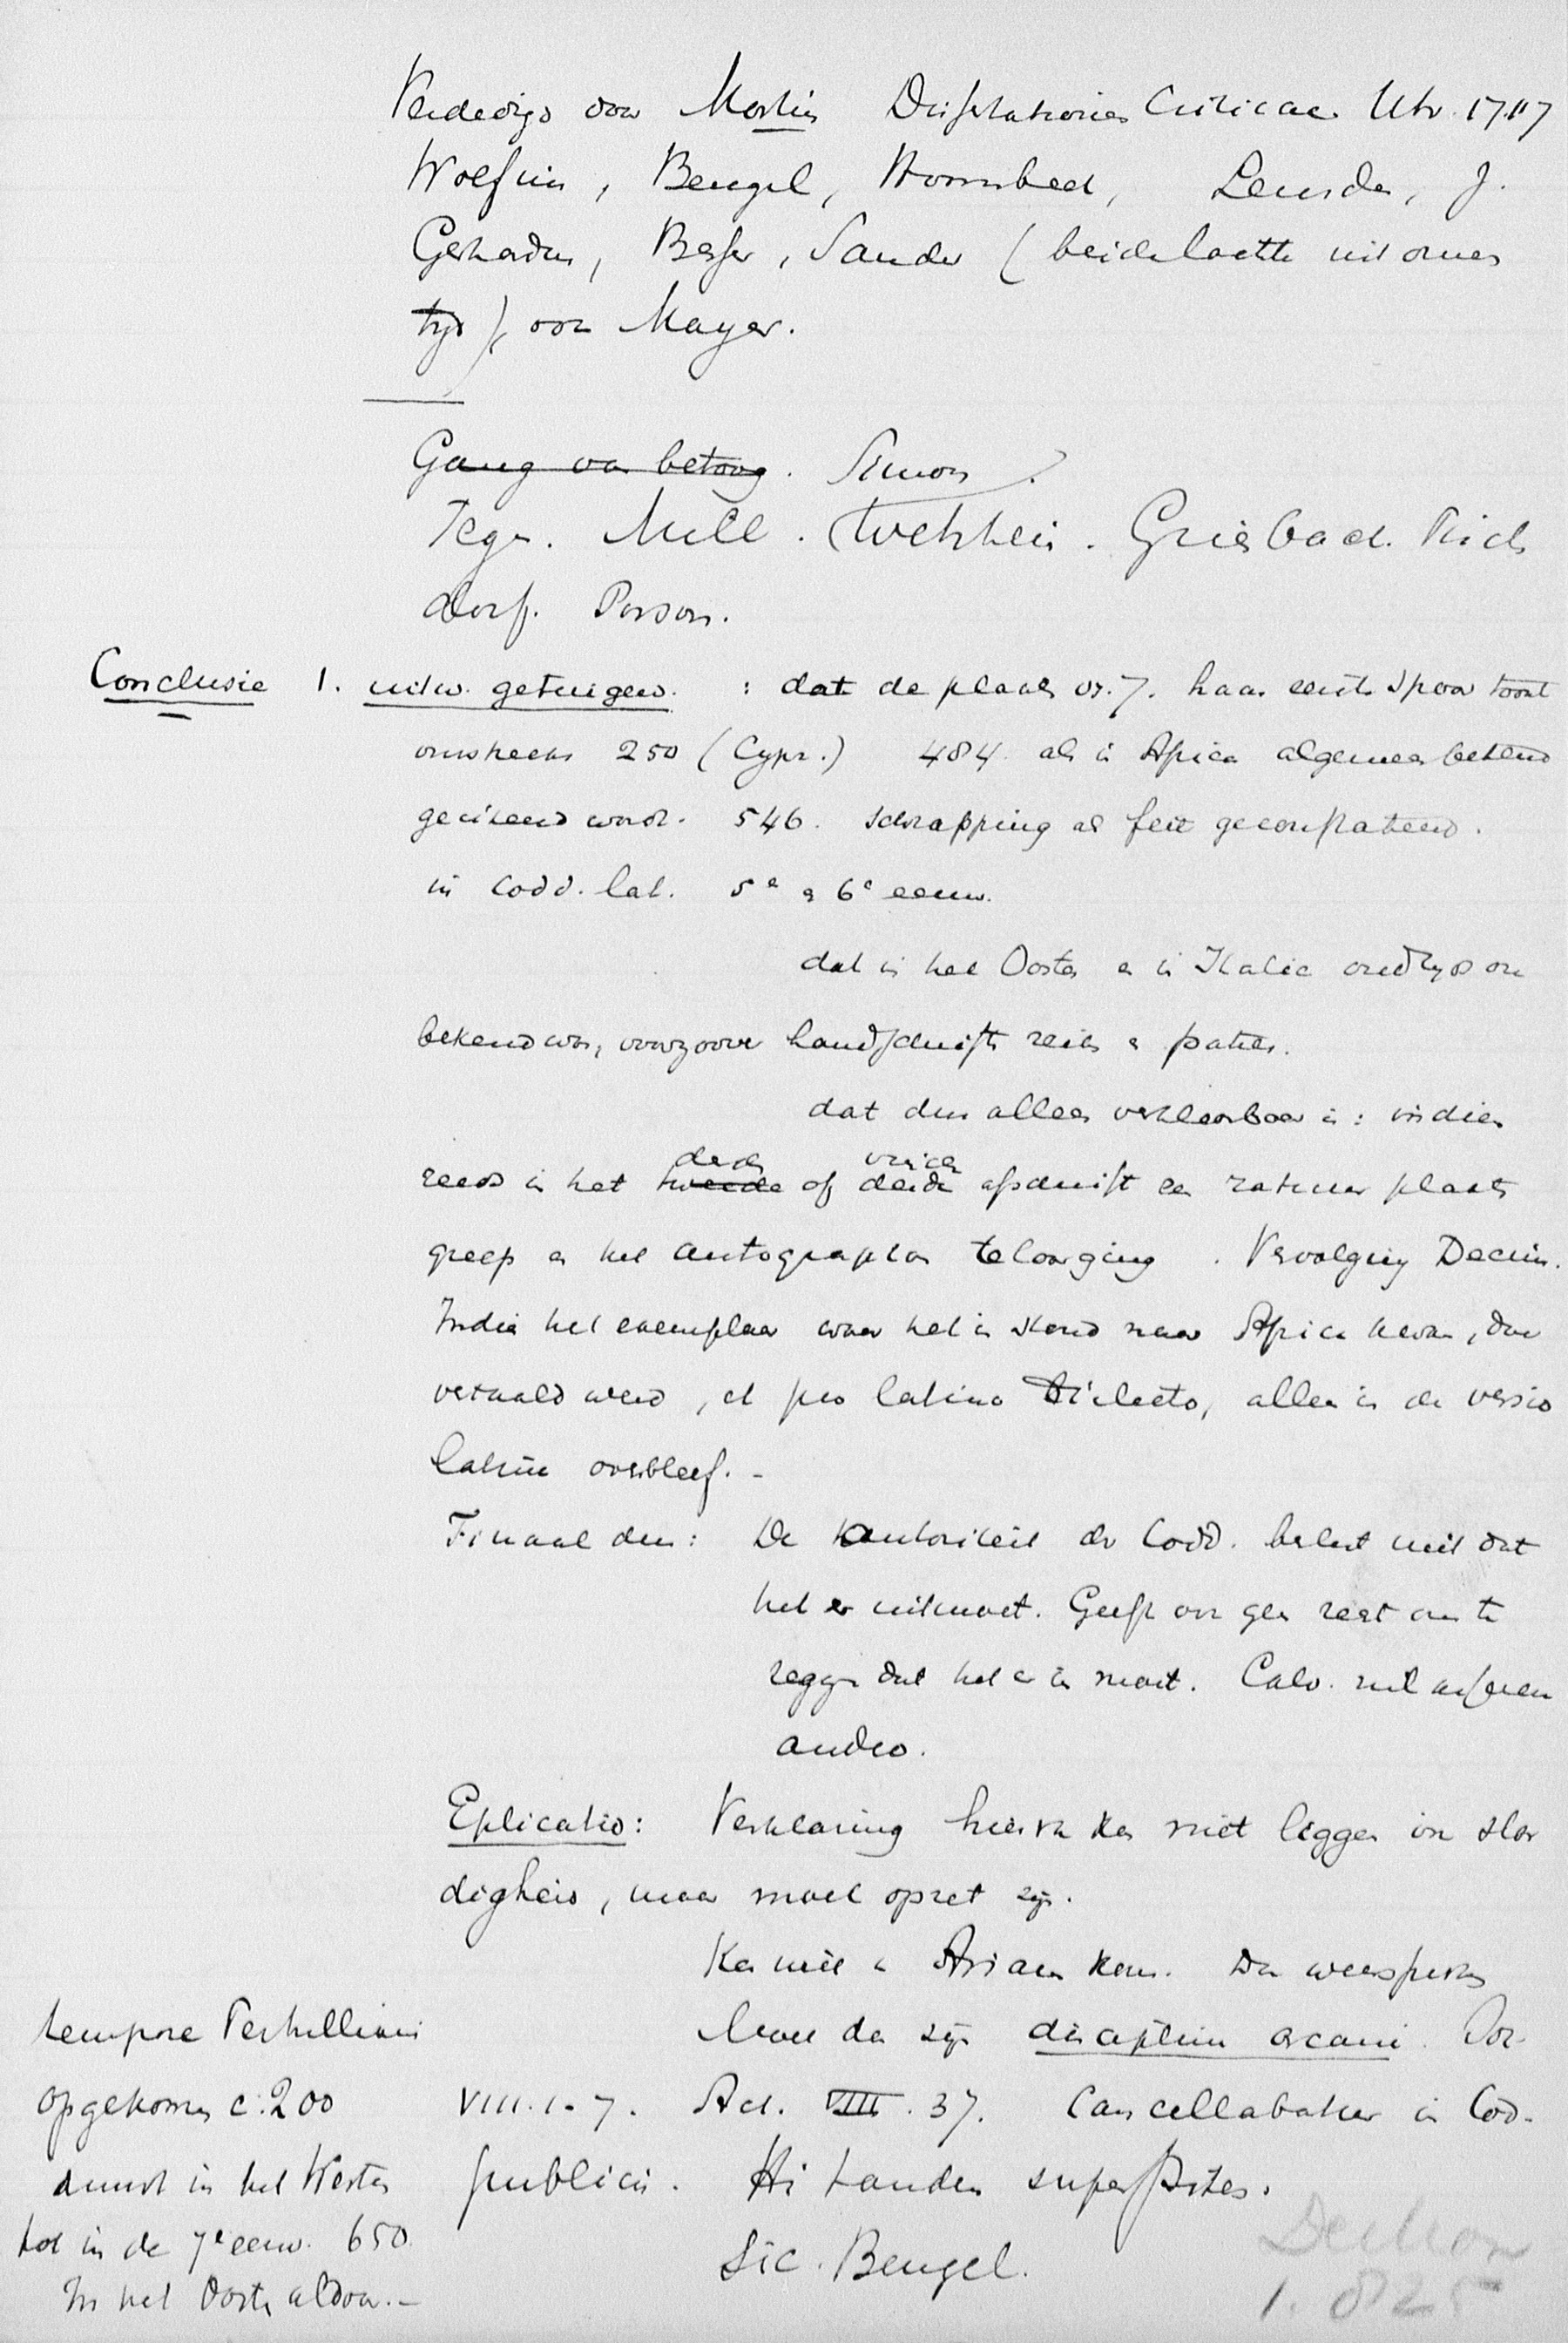 Verdedigd door Martin Dissertationes Criticae Utr. 1717
Wolfius, Bengel, Hoornbeek, Leusden, J.
Gerhardus, Besser, Sander (beide laatste uit onzen
tijd) oor Mayer.
Gang van betoog. Simon.
Tegen. Mill. Wetstein. Griesbach. Tisch
dorf. Porson.
Conclusie 1. uitw. getuigen. : dat de plaats vs. 7. haar eerste spoor toont
omstreeks 250 (Cypr.) 484 als in Africa algemeen bekend
geciteerd wordt. 546. schrapping als feit geconstateerd.
in Codd. lat. 5e & 6e eeuw.
dat in het Oosten en in Italie oudtijds on
bekend was, voorzoover handschrift reikt & patres.
dat dus alleen verklaarbaar is: indien
derde vierde
reeds in het tweede of derde afschrift een ratuur plaats
greep en het autographon teloor ging. Vervolging Decius.
Indien het exemplaar waar het in stond naar Africa kwam, daar
vertaald werd, et pro latino dilecto, alleen in de versio
latina overbleef. -
Finaal dus: De autoriteit der Codd. belet niet dat
het er uitmoet. Geeft oor geen recht om te
zeggen dat het er in moet. Calv. nil asserere
audeo.
Eplicatio: Verklaring hiervan kan niet liggen in slor
digheid, maar moet opzet zijn.
Kan niet Ariaen
disciplina arcani.
VIII. 1-7. Act. VIII. 37. Cancellabatur in Cod.
publicis. Hi tandem superstites.
Sic. Bengel.
tempore Tertulliani
opgekomen c. 200
duurt in het Westen
tot in de 7e eeuw. 650
In het Oosten aldoor. -
1. 825